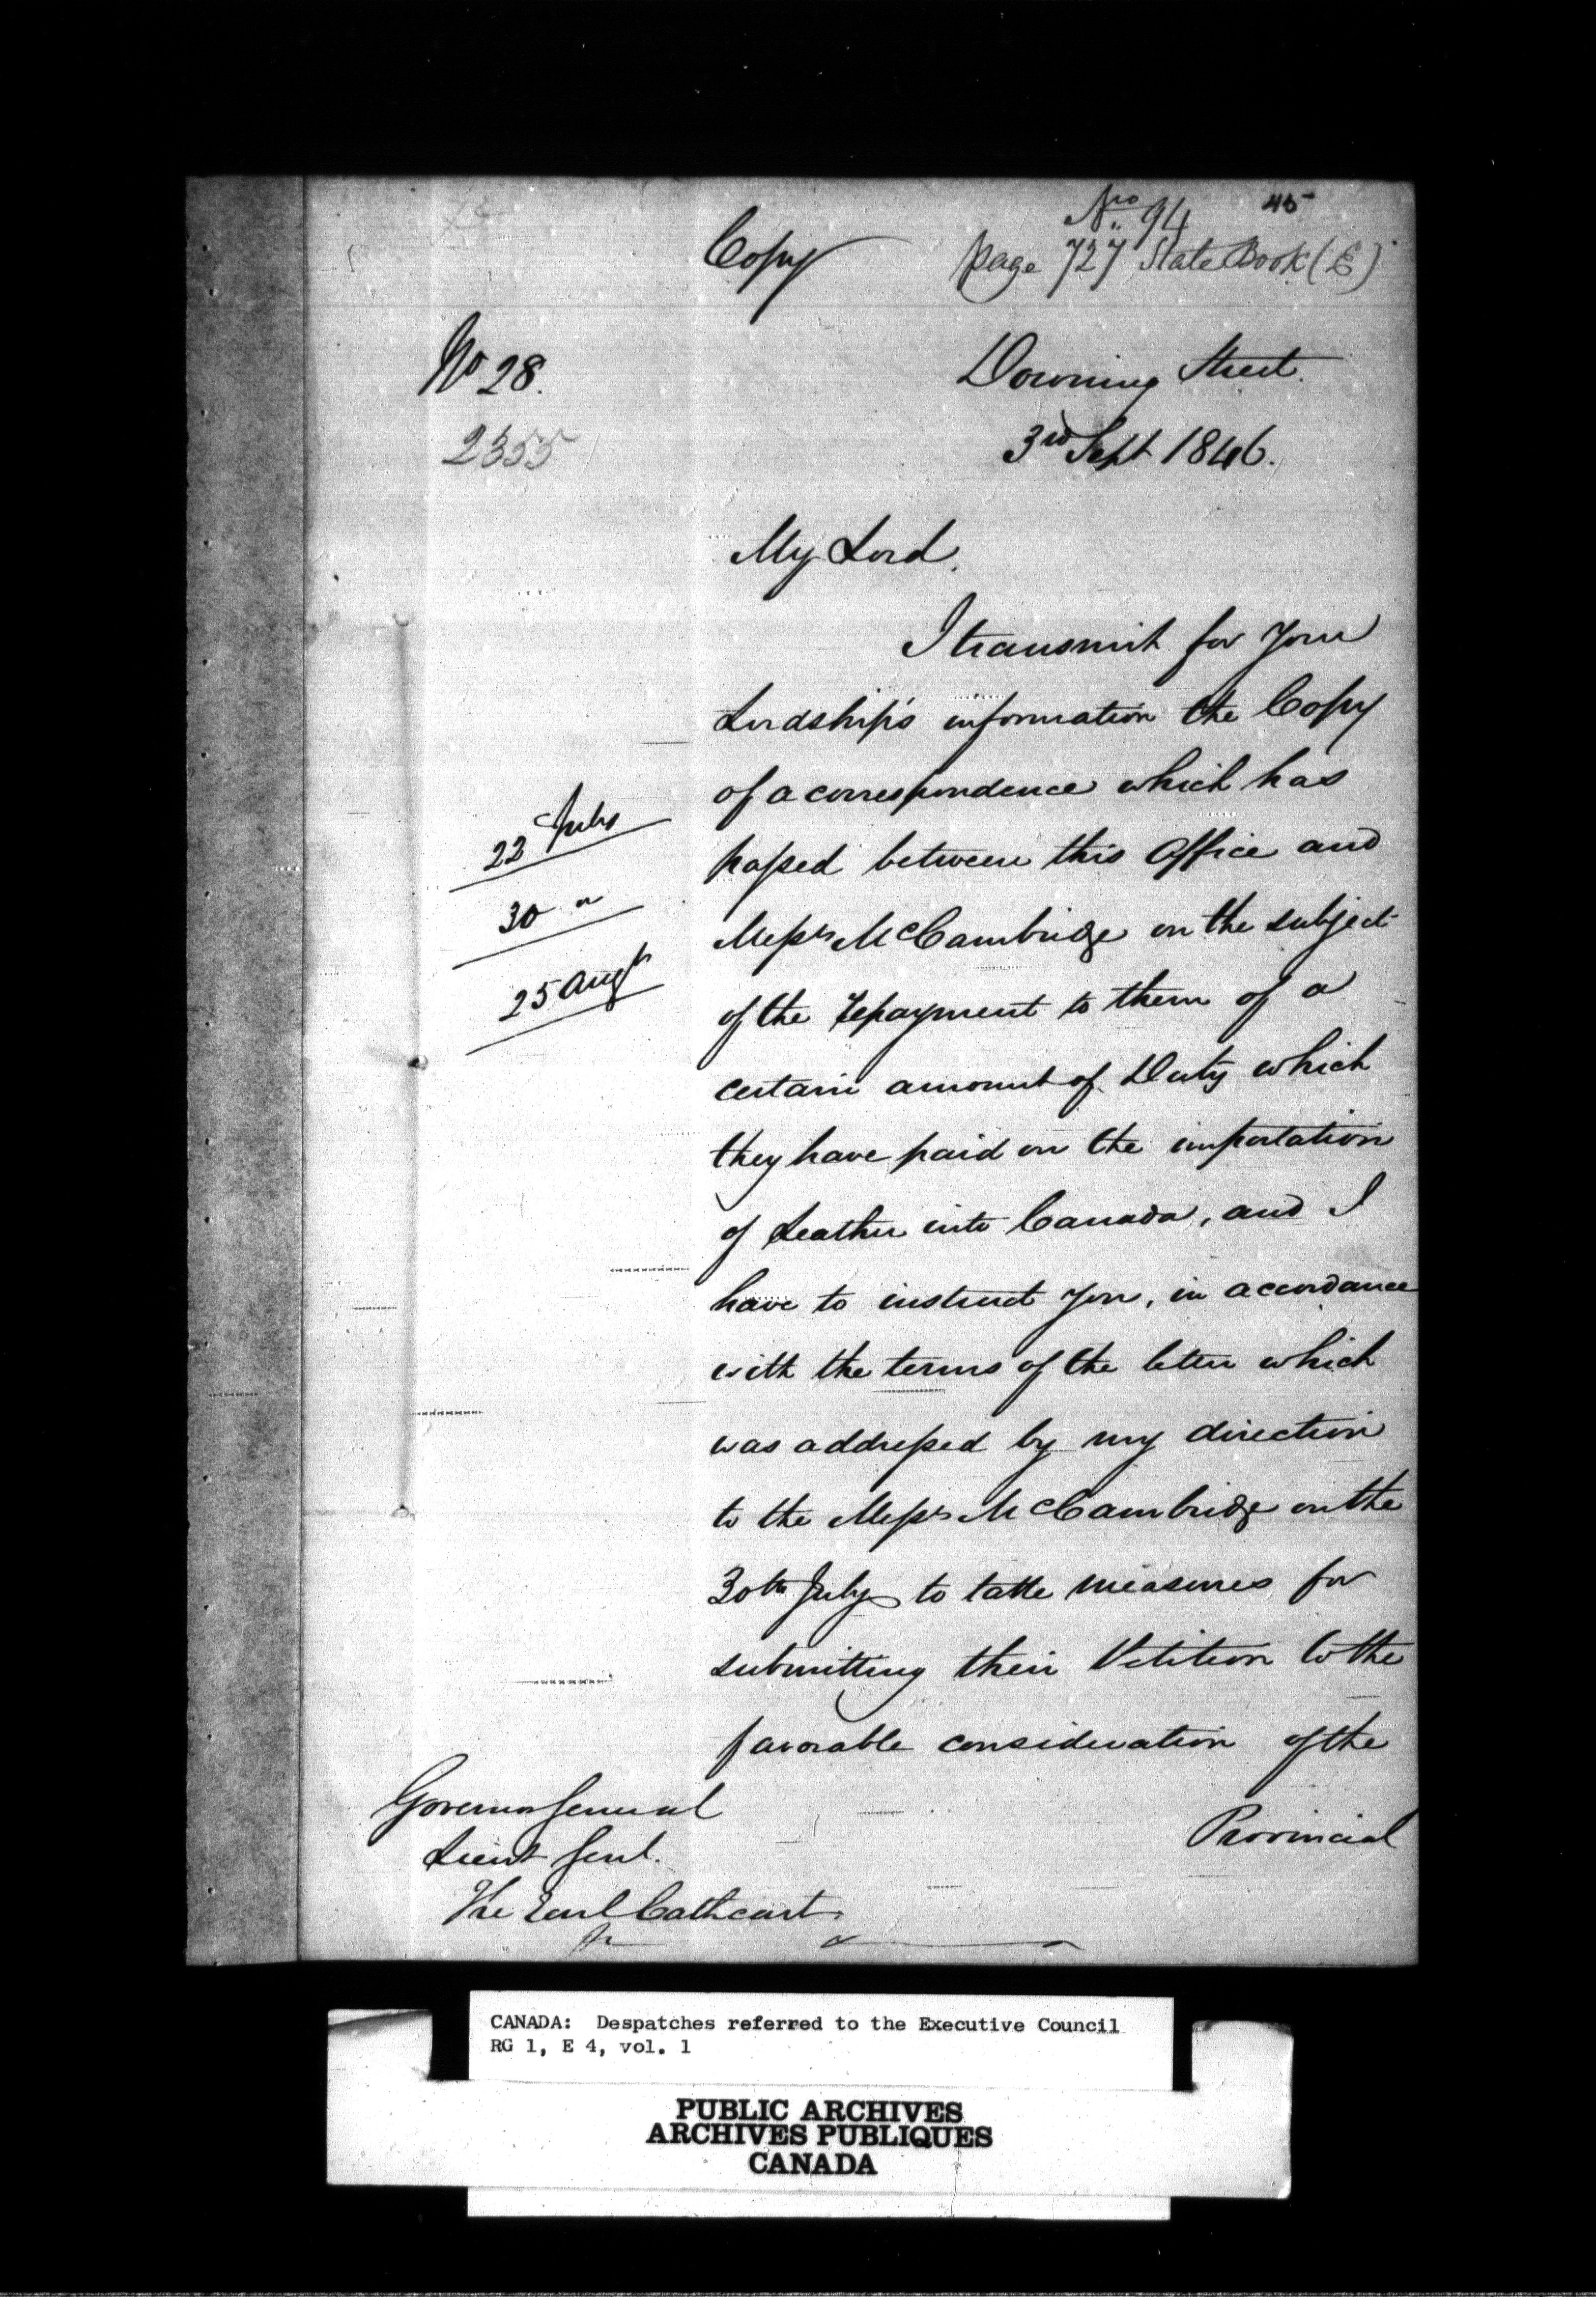 No. 94
45
Copy
page 727 State Book (E)
No 28.
Downing Street.
2355
3rd Sept 1846.
My Lord.
I transmit for Your
Lordship's information the Copy
of a correspondence which has
passed between this Office and
Messrs McCambridge on the subject
of the repayment to them of a
certain amount of Duty which
they have paid on the importation
of Leather into Canada, and I
have to instruct you, in accordance
with the terms of the letter which
was addressed by my direction
to the Messrs McCambridge on the
30th July to take measures for
submitting their Petition to the
favorable consideration of the
Provincial
22 July
30 "
25 Augt
Governor General
Lieut Genl.
The Earl Cathcart
CANADA: Despatches referred to the Executive Council
RG 1, E 4, vol. 1
PUBLIC ARCHIVES
ARCHIVES PUBLIQUES
CANADA